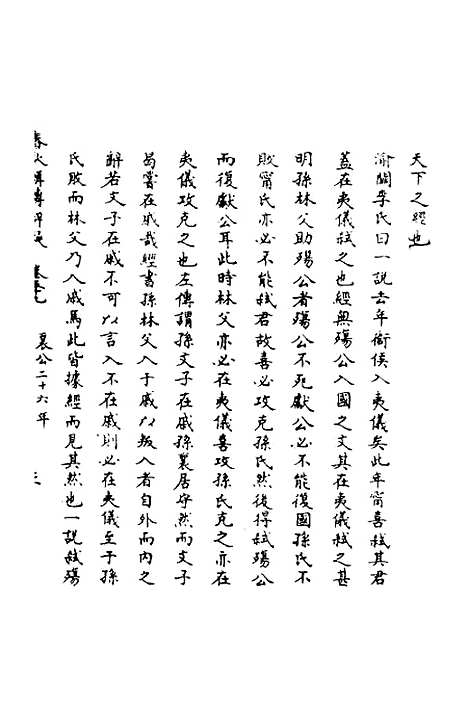 天下之經也
渝關李氏曰一說去年衛侯入夷儀矣此年甯喜弑其君
蓋在夷儀弑之也經無殤公入國之文其在夷儀弑之甚
明孫林父助殤公者殤公不死獻公必不能復國孫氏不
敗甯氏亦必不能弑君故喜必攻克孫氏然後得弑殤公
而復獻公耳此時林父亦必在夷儀喜攻孫氏克之亦在
夷儀攻克之也左傳謂孫文子在戚孫襄居守然而文子
曷嘗在戚哉經書孫林父入于戚以叛入者自外而內之
辭若文子在戚不可以言入不在戚則必在夷儀至于孫
氏敗而林父乃入戚焉此皆據經而見其然也一說弑殤
春秋 襄公二十六年